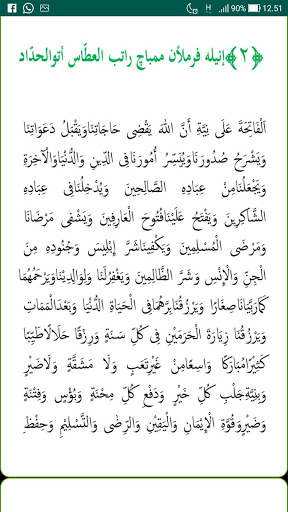 12.51
﴿٢﴾إنيله فرملأن ممباچ راتب العطّاس أتوالحدّاد
اَلْفَاتِحَةَ عَلَى نِيَّةِ أَنَّ اللهَ يَقْضِى حَاجَاتِنَاوَيَقْبَلُ دَعَوَاتِنَا
وَيَشْرَحُ صُدُورَنَاوَيُيَسِّرُ أُمُورَنَافِى الدِّينِ وَالدُّنْيَاوَالْآخِرَةِ
وَيَجْعَلُنَامِنْ عِبَادِهِ الصَّالِحِينَ وَيُدْخِلُنَافِى عِبَادِهِ
الشَّاكِرِينَ وَيَفْتَحُ عَلَيْنَافُتُوحَ الْعَارِفِينَ وَيَشْفِى مَرْضَانَا
وَمَرْضَى الْمُسْلِمِينَ وَيَكْفِينَاشَرَّ إِبْلِيسَ وَجُنُودِهِ مِنَ
الْجِنِّ وَالْإِنْسِ وَشَرَّ الظَّالِمِينَ وَيَغْفِرُلَنَا وَلِوَالِدِيْنَاوَيَرْحَمُهُمَا
كَمَارَبَّيَانَاصِغَارًا وَيَرْزُقُنَابِرَّهُمَافِى الْحَيَاةِ الدُّنْيَا وَبَعْدَالْمَمَاتِ
وَيَرْزُقُنَا زِيَارَةَ الْحَرَمَيْنِ فِى كُلِّ سَنَةٍ وَرِزْقًا حَلَالًاطَيِّبًا
كَثِيْرًامُبَارَكًا وَاسِعًامِنْ غَيْرِتَعَبٍ وَلَا مَشَقَّةٍ وَلَاضَيْرٍ
وَبِنِيَّةِجَلْبِ كُلِّ خَيْرٍ وَدَفْعِ كُلِّ مِحْنَةٍ وَبُؤْسٍ وَفِتْنَةٍ
وَضَيْرٍوَقُوَّةِ الْإِيْمَانِ وَالْيَقِيْنِ وَالرِّضٰى وَالتَّسْلِيْمِ وَحِفْظِ